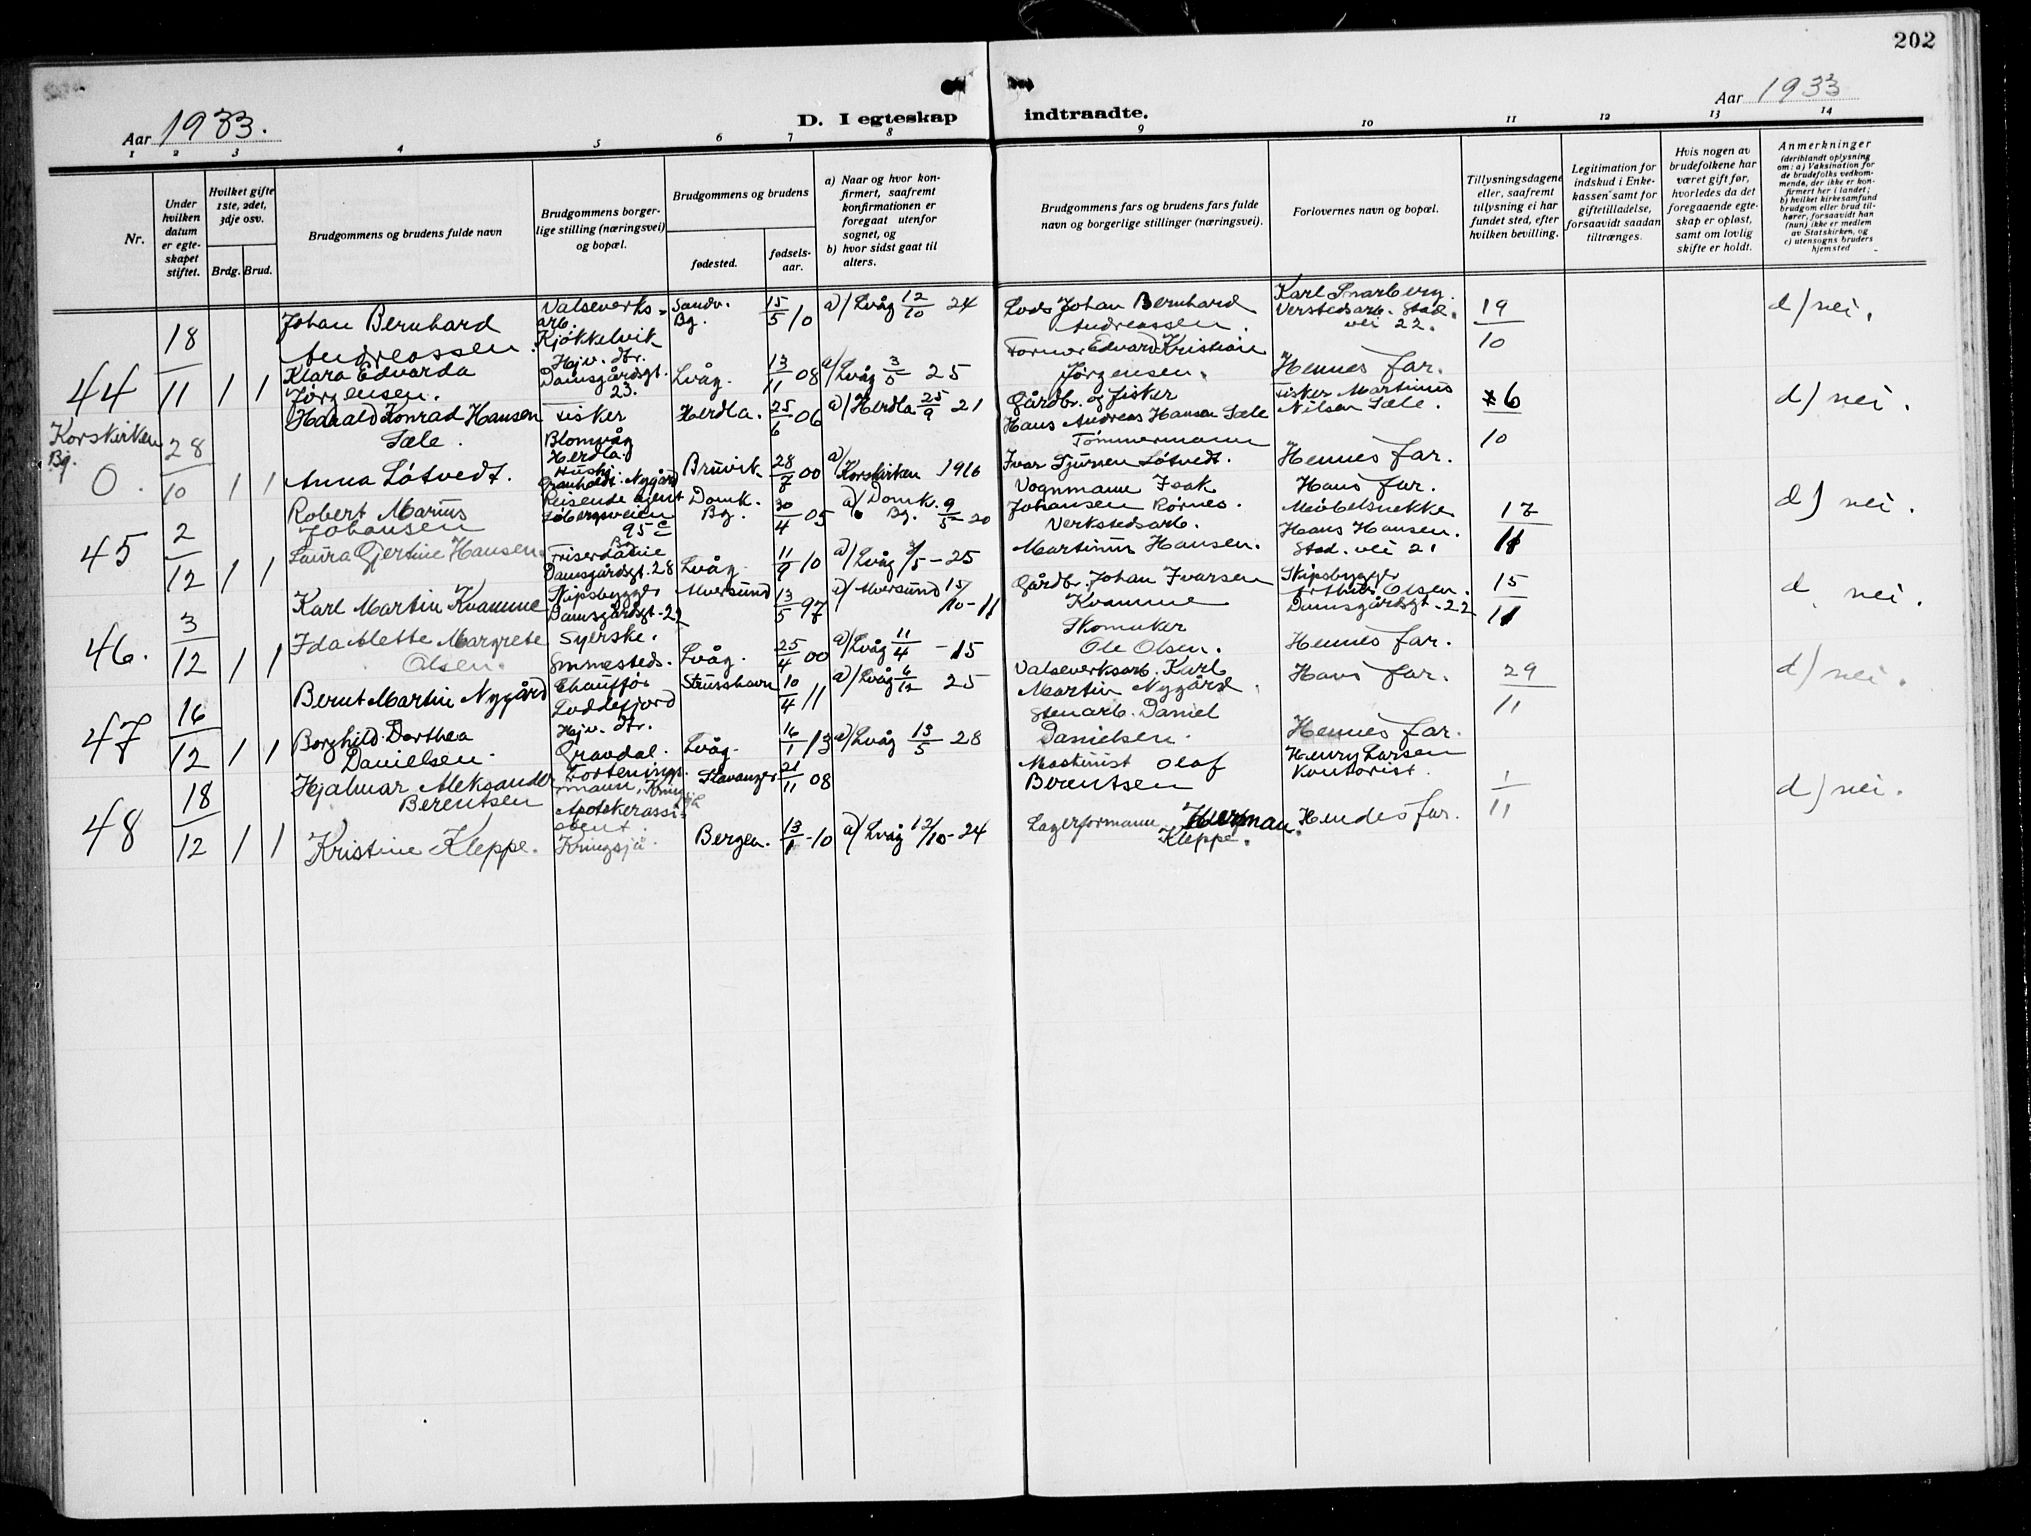 202
Aar 1933.
D. I egteskap
indtraadte.
Aar 1933
1 2 3 4 5 6 7 8 9 10 11 12 13 14
Nr.
Under hvilken datum er egteskapet stiftet.
Hvilket gifte 1ste, 2det, 3dje osv.
Brdg. Brud.
Brudgommens og brudens fulde navn
Brudgommens borgerlige stilling (næringsvei) og bopæl.
Brudgommens og brudens
fødested.
fødselsaar.
a) Naar og hvor konfirmert, saafremt konfirmationen er foregaat utenfor sognet, og
b) hvor sidst gaat til alters.
Brudgommens fars og brudens fars fulde navn og borgerlige stillinger (næringsvei).
Forlovernes navn og bopæl.
Tillysningsdagene eller, saafremt tillysning ei har fundet sted, efter hvilken bevilling.
Legitimation for indskud i Enkekassen samt for giftetilladelse, forsaavidt saadan tiltrænges.
Hvis nogen av brudefolkene har været gift før, hvorledes da det foregaaende egteskap er opløst, samt om lovlig skifte er holdt.
Anmerkninger
(deriblandt oplysning om: a) Vaksination for de brudefolks vedkommende, der ikke er konfirmert her i landet; b) hvilket kirkesamfund brudgom eller brud tilhører, forsaavidt han (hun) ikke er medlem av Statskirken, og c) utensogns bruders hjemsted
44
18/11
1 1
Johan Bernhard
Andreassen
Valseverks-
arb.
Kjøkkelvik
Sandv.
Bg.
15/5 10
a) Lvåg 12/10 24
Lods Johan Bernhard
Andreassen.
Karl Snarberg.
Verstedsarb. Stad.
vei 22.
19/10
d) nei.
Klara Edvarda
Jørgensen.
Hjv. dtr.
Damsgårdsgt.
23.
Lvåg.
13/11 08
a) Lvåg 3/5 25
Former Edvard Kristian
Jørgensen.
Hennes far.
Korskirken
Bg.
0.
28/10
1 1
Harald Konrad Hansen
Sæle.
Fisker
Blomvåg
Herdla.
Herdla.
25/6 06
a) Herdla 25/9 21
Gårdbr. og fisker
Hans Andreas Hansen Sæle
Fisker Martinus
Nilsen Sæle.
6/10
d) nei.
Anna Løtvedt.
Hushj.
Nygård
Bruvik
28/7 00
a) Korskirken 1916
Tømmermann
Ivar Sjursen Løtvedt.
Hennes far.
45
2/12
1 1
Robert Marius
Johansen
Reisende agent
Løbergsveien
95 c
Domk.
Bg.
30/4 05
a) Domk.
Bg. 9/5 20
Vognmann Isak
Johansen Rørnes.
Hans far.
17/11
d) nei.
Laura Gjertine Hansen.
Friserdame
Damsgårdsgt. 28
Lvåg.
11/9 10
a) Lvåg 3/5 - 25
Verkstedsarb.
Martinus Hansen.
Møbelsnekke
Hans Hansen.
Stad. vei 21
46.
3/12
1 1
Karl Martin Kvamme
Skipsbygger
Damsgårdsgt. 22
Alversund
13/5 97
a) Alversund 15/10 - 11
Gårdbr. Johan Ivarsen
Kvamme
Skipsbygger
Arthur Olsen.
Damsgårdsgt. 22
15/11
d. nei.
Ida Mette Margrete
Olsen.
Syerske.
Lvåg.
25/4 00
a) Lvåg 11/4 - 15
Skomaker
Ole Olsen.
Hennes far.
47
16/12
1 1
Bernt Martin Nygård
Chauffør
Loddefjord
Strusshavn
10/4 11
a) Lvåg 6/12 25
Valseverksarb. Karl
Martin Nygård.
Hans far.
29/11
d) nei.
Borghild Dorthea
Danielsen.
Hjv. dtr.
Gravdal.
Lvåg.
16/1 13
a) Lvåg 13/5 28
Stenarb. Daniel
Danielsen.
Hennes far.
48
18/12
1 1
Hjalmar Aleksander
Berentsen
Stavanger
21/11 08
Maskinist Olaf
Berentsen
Henry Larsen
Kontorist.
1/11
d) nei.
Kristine Kleppe.
Apotekerassi-
stent.
Kringsjå
Bergen.
13/1 - 10
a) Lvåg 12/10 - 24
Lagerformann Herman
Kleppe.
Hendes far.